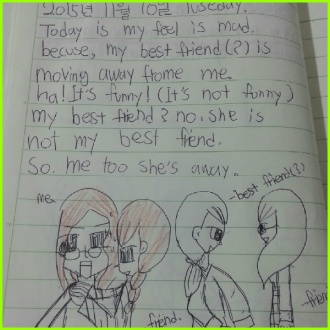 2015년 11월 10일 Tuseday.
Today is my feel is mad.
becuse, my best friend(?) is
moving away frome me.
ha! It's funny! (It's not funny)
my best friend? no. she is
not my best friend.
So. me too she's away.
me.
-best friend(?)
friend.
-frien